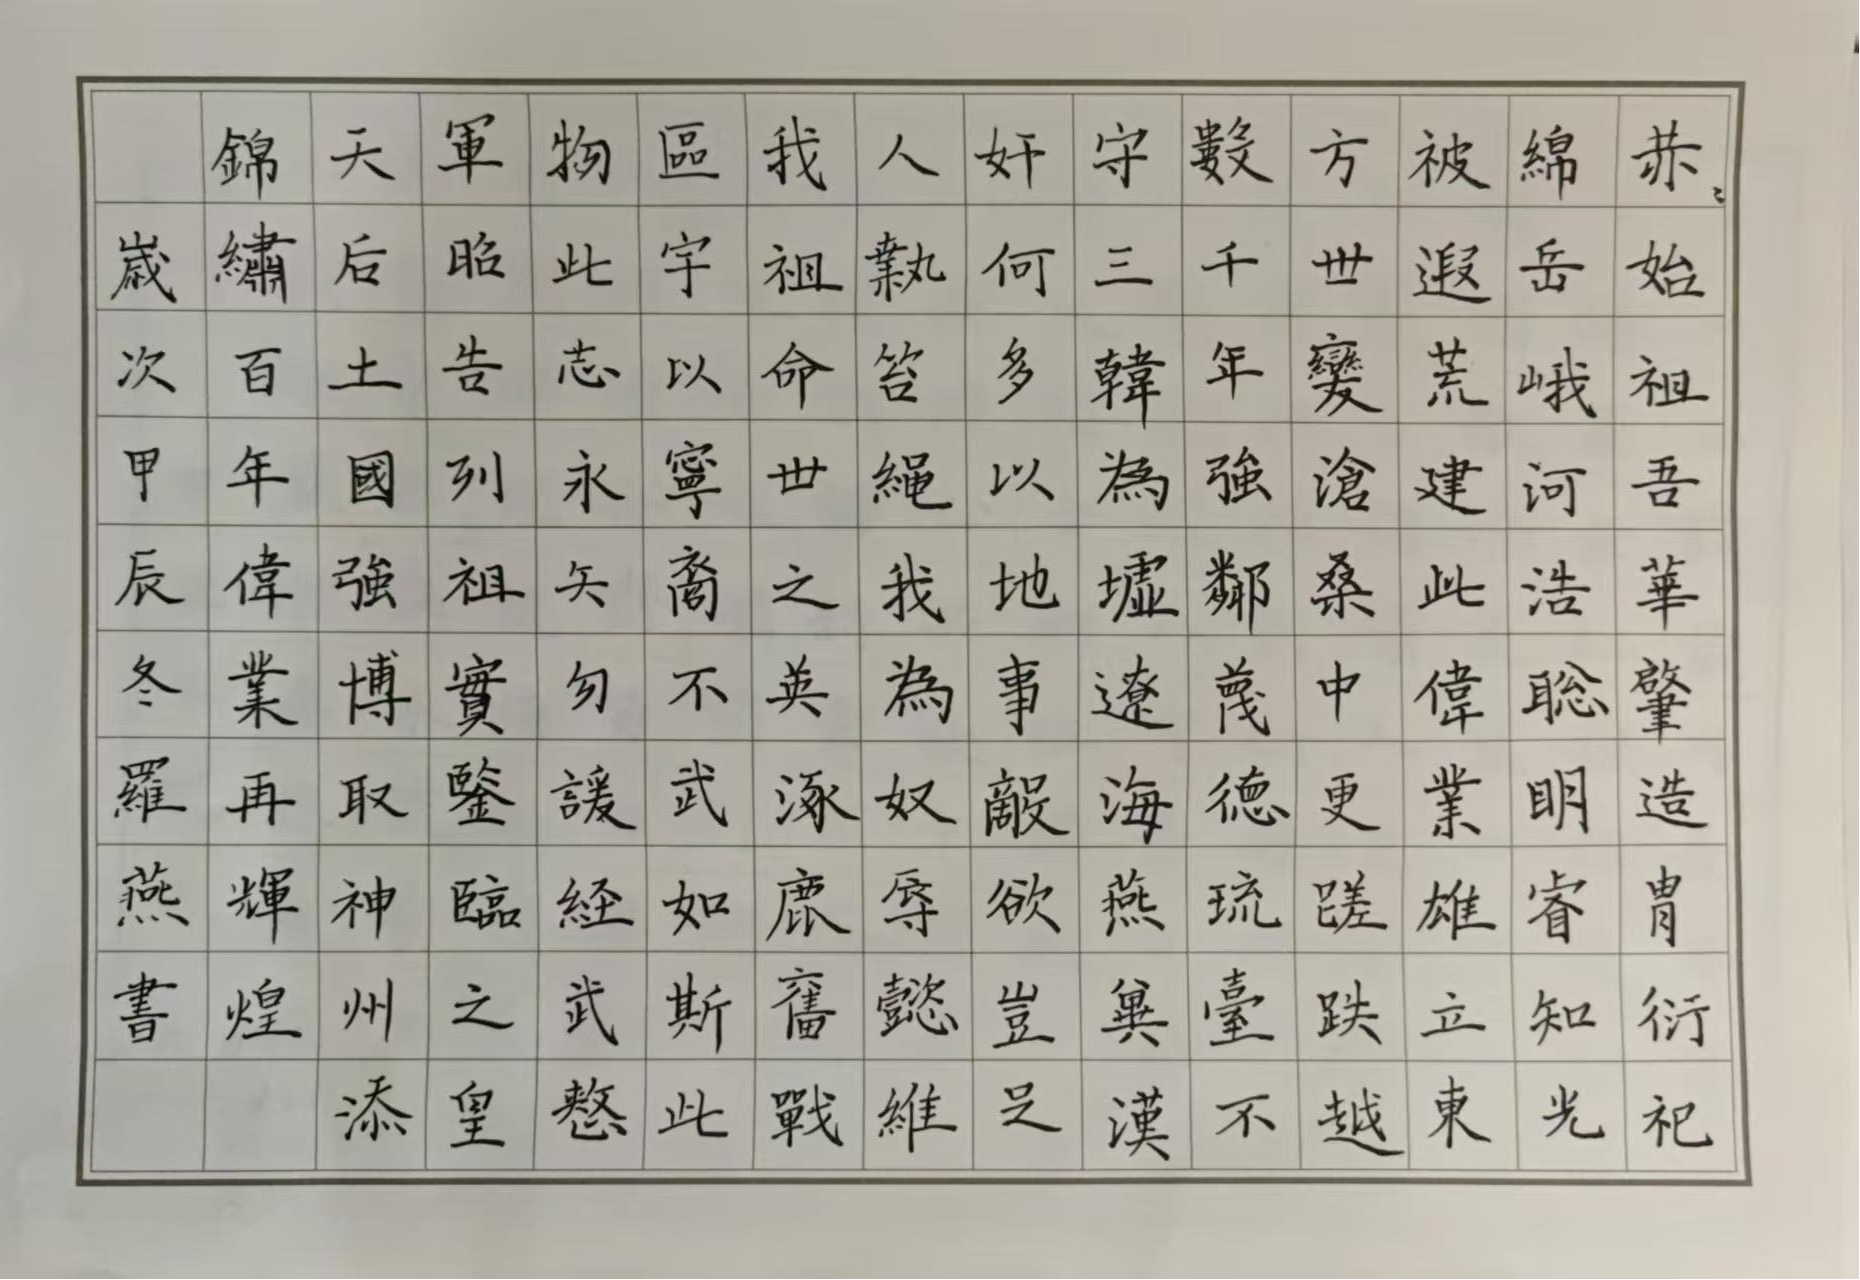 赤〻始祖吾華肇造冑衍祀
綿岳峨河浩聡明睿知光
被遐荒建此偉業雄立東
方世變滄桑中更蹉跌越
數千年強鄰蔑德琉臺不
守三韓為墟遼海燕冀漢
奸何多以地事敵欲豈足
人執笞繩我為奴辱懿維
我祖命世之英涿鹿奮戰
區宇以寧裔不武如斯此
物此志永矢勿諼経武整
軍昭告列祖實鑒臨之皇
天后土國強博取神州添
錦繡百年偉業再輝煌
歲次甲辰冬羅燕書